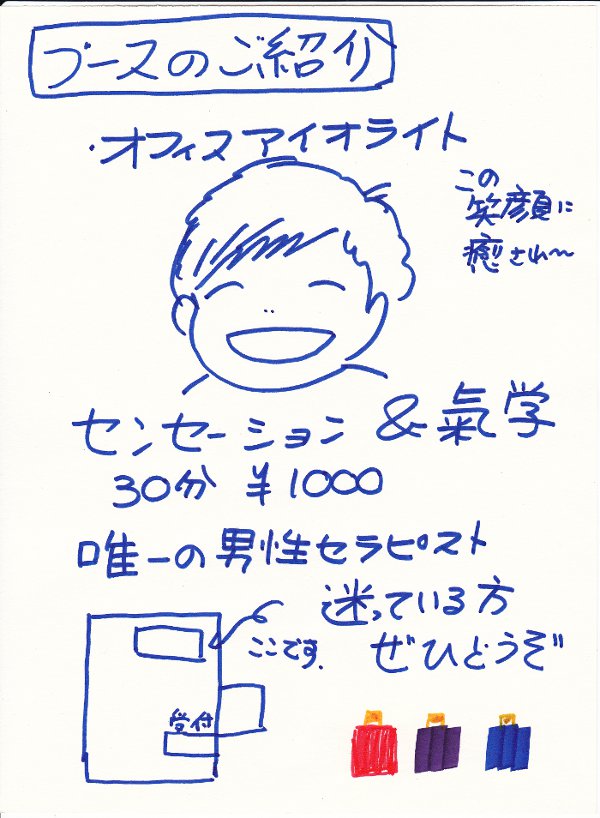 ブースのご紹介
・オフィスアイオライト
この
笑顔に
癒され〜
センセーション&氣学
30分 ¥1000
唯一の男性セラピスト
迷っている方
ぜひどうぞ
ここです.
受付